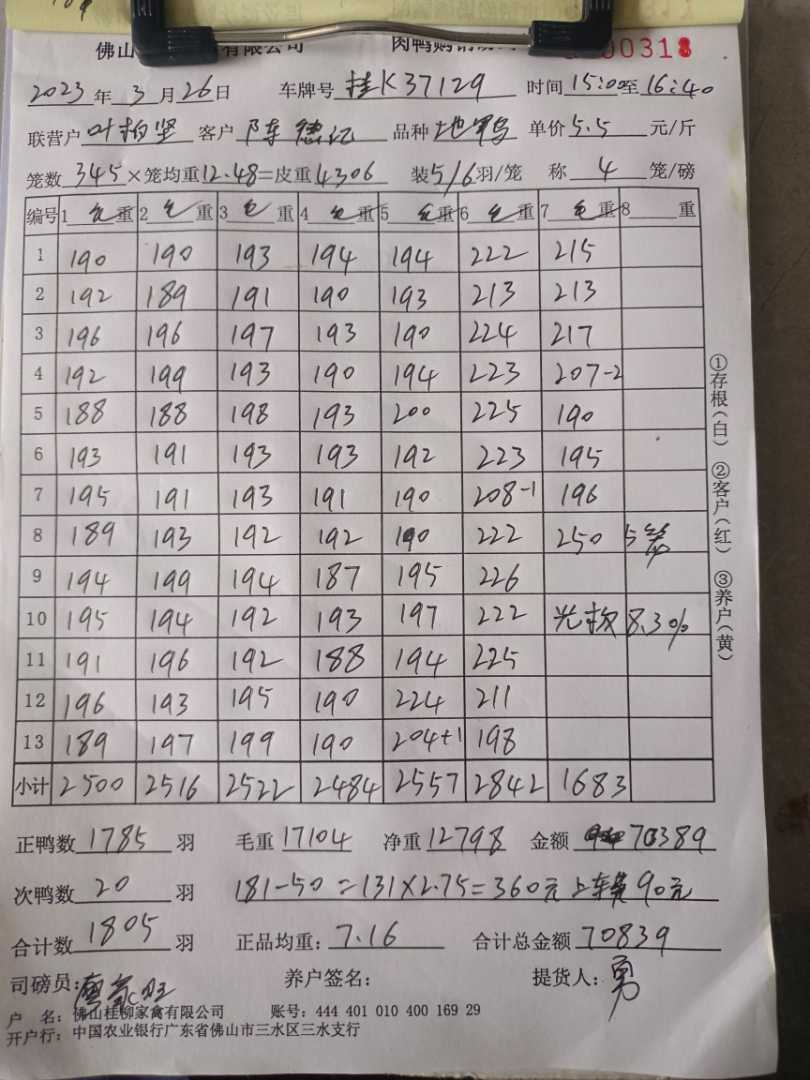 佛山 有限公司 肉鸭购销 00318
2023年3月26日 车牌号 桂K37129 时间 15:00至16:40
联营户 叶柏坚 客户 陈德记 品种 地鸭 单价5.5元/斤
笼数 345×笼均重12.48=皮重4306 装5/6羽/笼 称 4 笼/磅
编号 1毛重 2毛重 3毛重 4毛重 5毛重 6毛重 7毛重 8 重
1 190 190 193 194 194 222 215
2 192 189 191 190 193 213 213
3 196 196 197 193 190 224 217
4 192 199 193 190 194 223 207-2
5 188 188 198 193 200 225 190
6 193 191 193 193 192 223 195
7 195 191 193 191 190 208-1 196
8 189 193 192 192 190 222 250 5笼
9 194 199 194 187 195 226
10 195 194 192 193 197 222 8.3%
11 191 196 192 188 194 225
12 196 193 195 190 224 211
13 189 197 199 190 204+1 198
小计 2500 2516 2522 2484 2557 2842 1683
正鸭数 1785 羽 毛重 17104 净重 12798 金额 70389
次鸭数 20 羽 181-50=131×2.75=360元 上车费90元
合计数 1805 羽 正品均重: 7.16 合计总金额 70839
司磅员: 养户签名: 提货人: 勇
户 名: 佛山桂柳家禽有限公司 账号: 444 401 010 400 169 29
开户行: 中国农业银行广东省佛山市三水区三水支行
①存根(白) ②客户(红) ③养户(黄)